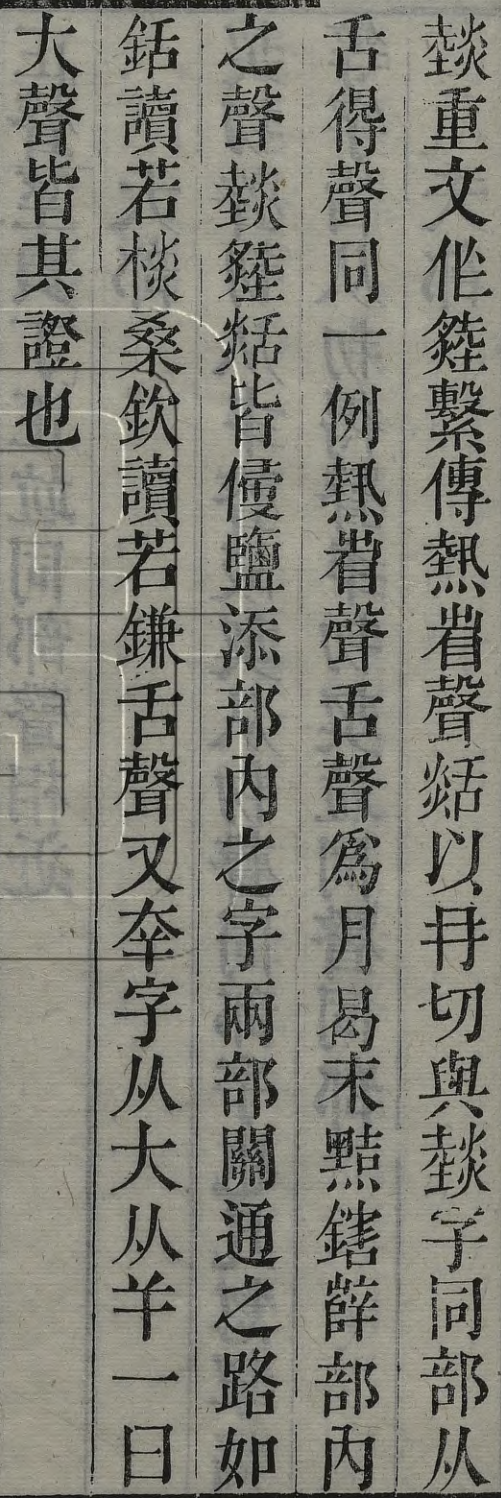 㷼重文作𤑔繫傳熱省聲𤈷以冄切與㷼字同部从
舌得聲同一例熱省聲舌聲爲月曷末黠鎋薛部內
之聲㷼𤑔𤈷皆侵鹽添部內之字兩部關通之路如
銛讀若棪桑欽讀若鎌舌聲又㚔字从大从𢆉一曰
大聲皆其證也